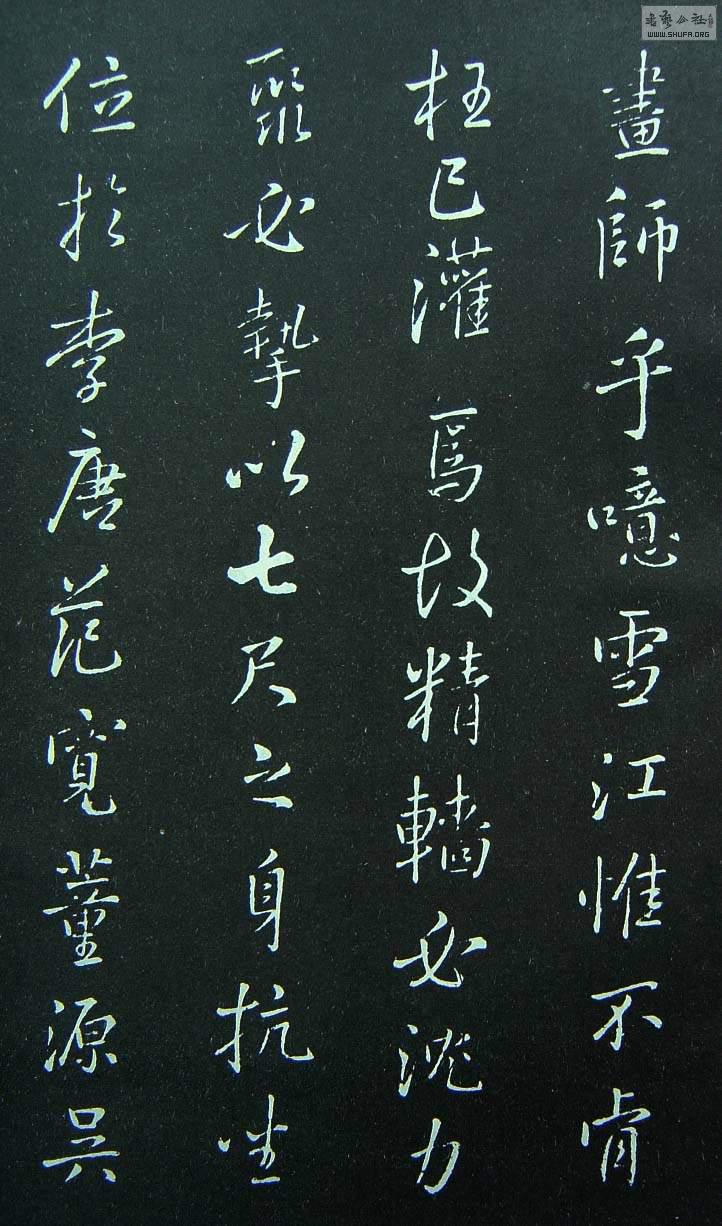 畫師乎噫雪江惟不肯
枉己灌焉故精轖必沈力
聚必摯以七尺之身抗坐
位於李唐范寬董源吳
书艺公社
WWW.SHUFA.ORG